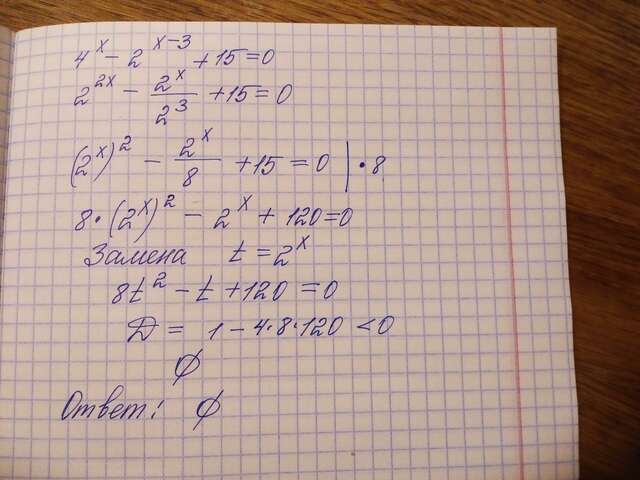 4^x - 2^(x-3) + 15 = 0
2^(2x) - 2^x/2^3 + 15 = 0
(2^x)^2 - 2^x/8 + 15 = 0 | • 8
8 • (2^x)^2 - 2^x + 120 = 0
Замена t = 2^x
8t^2 - t + 120 = 0
D = 1 - 4•8•120 < 0
∅
Ответ: ∅